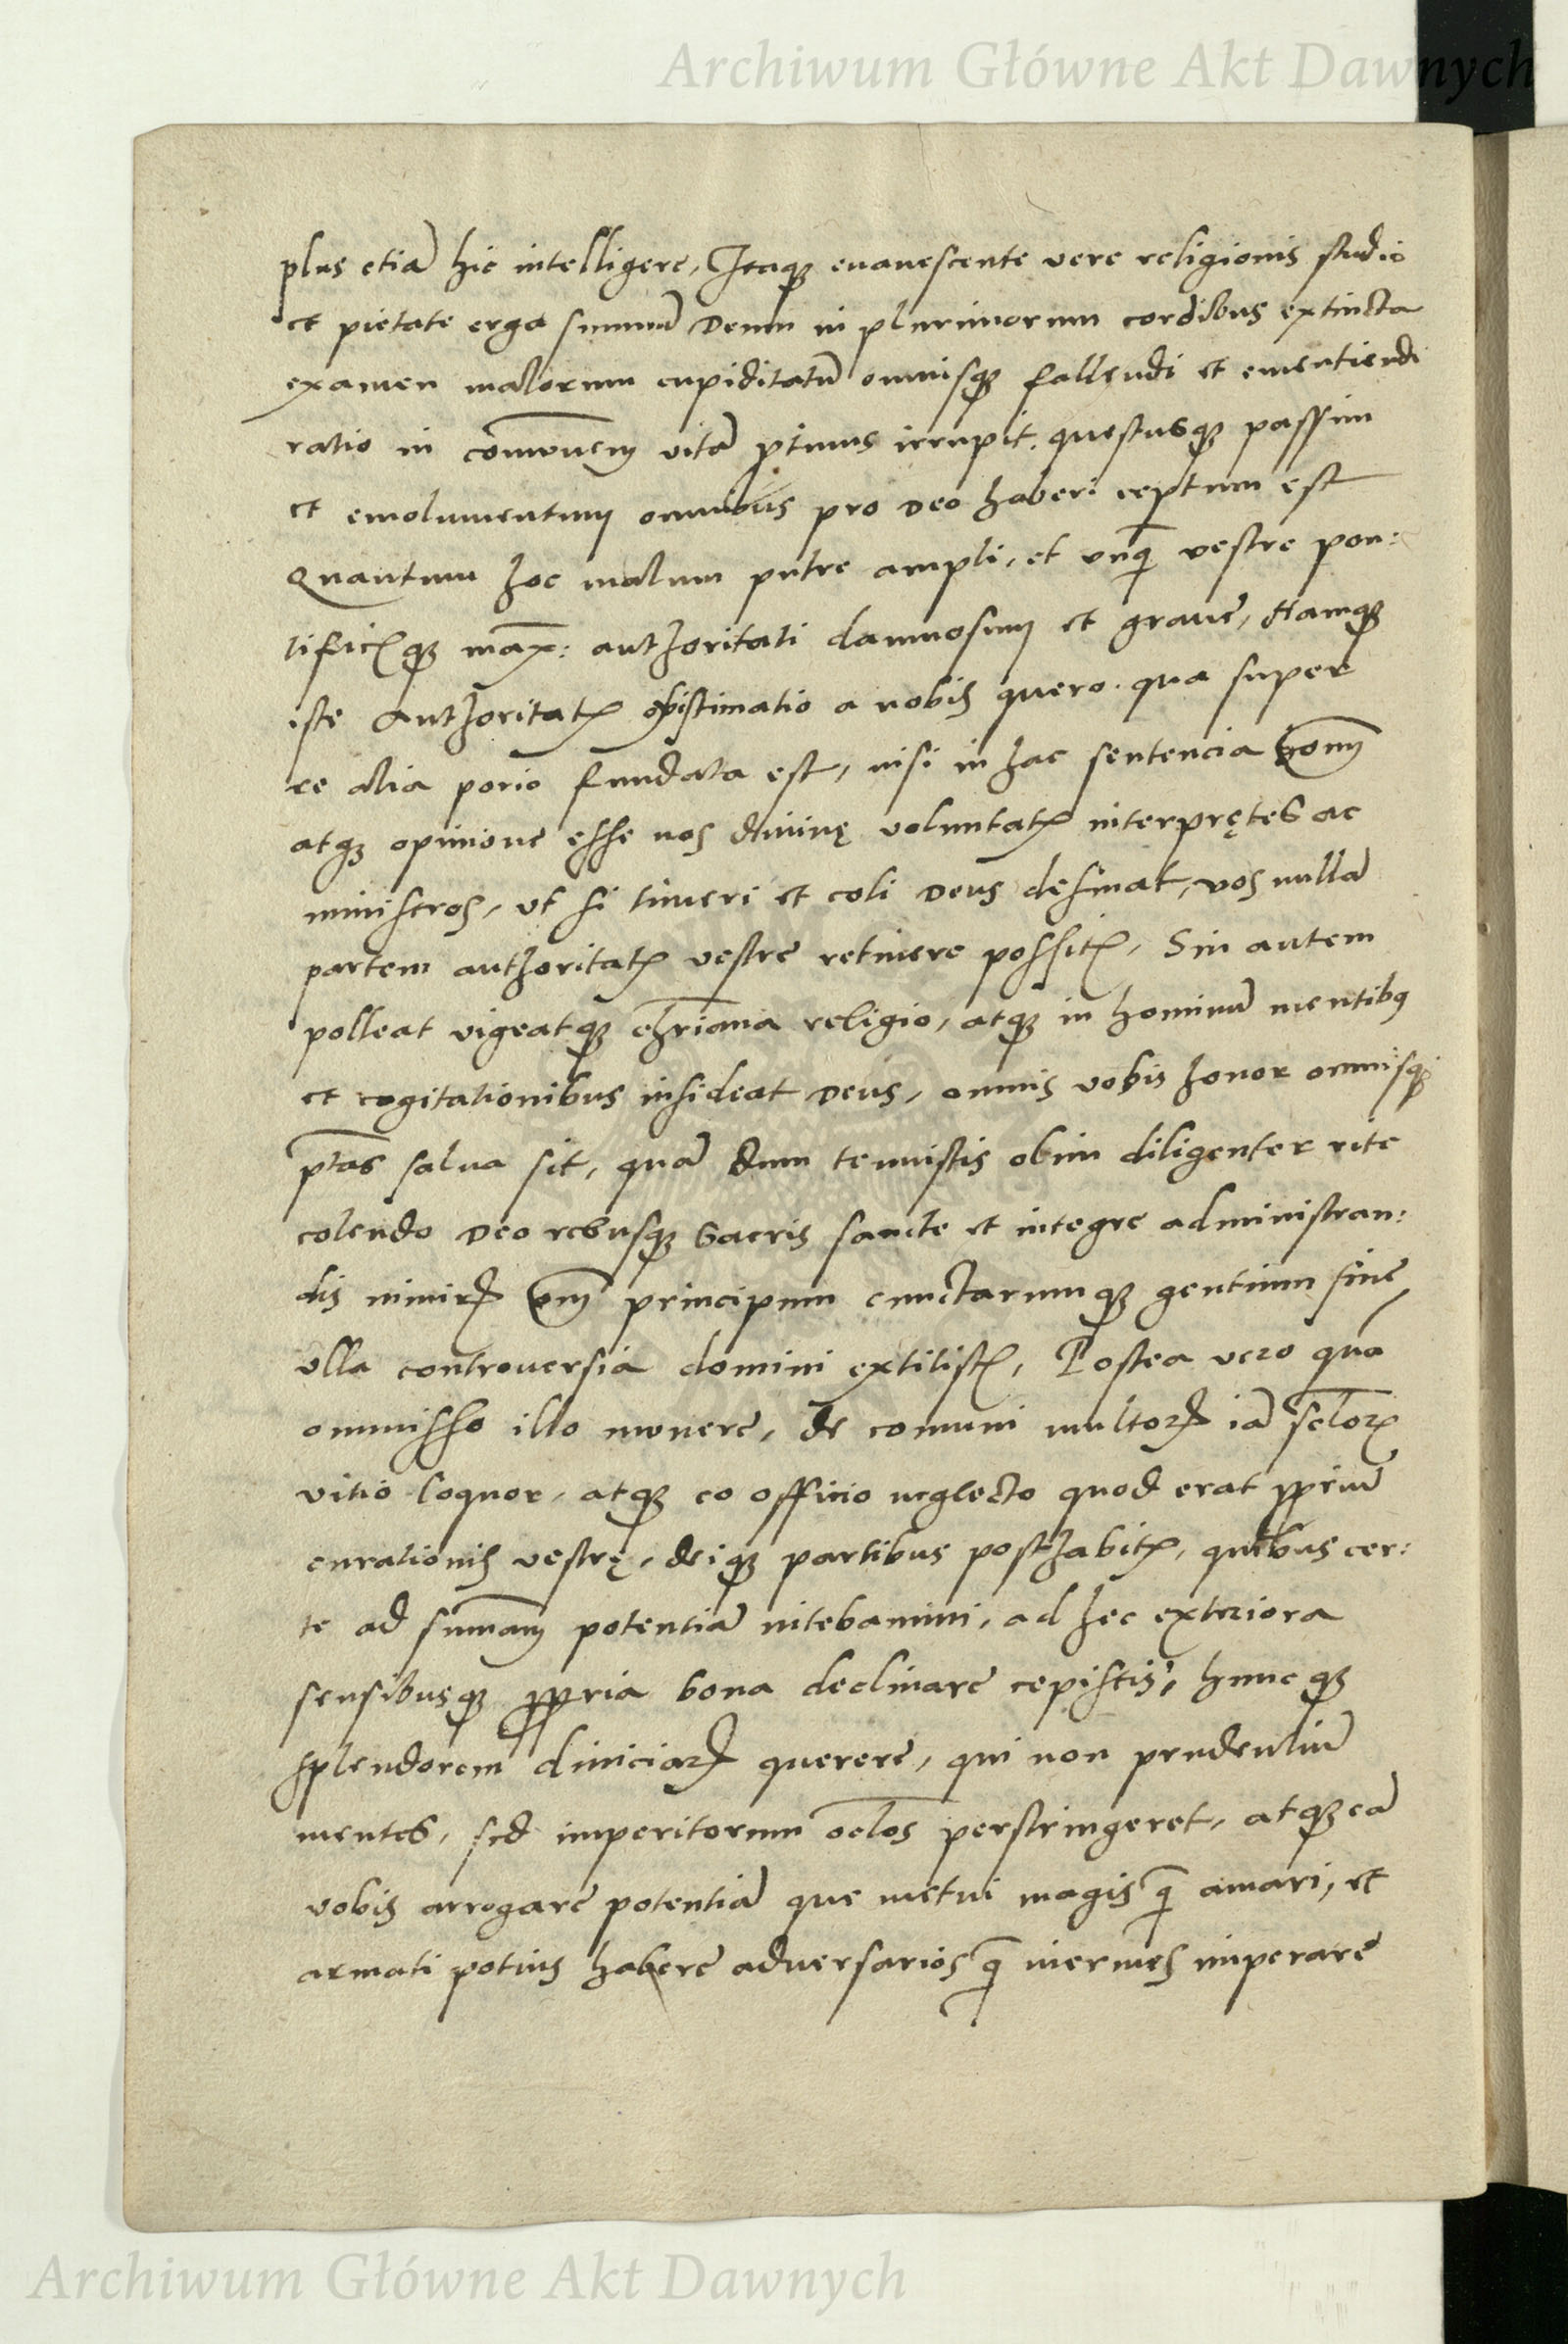 Archiwum Główne Akt Dawnych
plus etiã hic intelligere, Itaqꝫ euanescente vere religionis studio
et pietate erga summũ Deum in plurimorum cordibus extincta
examen malorum cupiditatũ omnisqꝫ fallendi et ementiendi
ratio in com̄unem vitã ꝓtinus irrupit. questusqꝫ passim
et emolumentum omnibus pro Deo haberi ceptum est
Quantum hoc malum putre ampli, et vnq̃ vestre pon:
tificꝭqꝫ max: authoritati damnosum et graue, Namqꝫ
iste authoritatꝭ existimatio a nobis quero. qua super
re alia porro fundata est, nisi in hac sentencia hom̄
atqꝫ opinione esse uos diuinę voluntatꝭ interprętes ac
ministros, vt si timeri et coli Deus desinat, vos nullã
partem authoritatꝭ vestre retinere possitꝭ, Sin autem
polleat vigeatqꝫ chr̃iana religio, atqꝫ in hominũ mentibꝰ
et cogitationibus insideat Deus, omnis vobis honor omnisqꝫ
ptãs salua sit, quã dum tenuistis olim diligenter rite
colendo Deo rebusqꝫ sacris sancte et integre administran:
dis nimirꝝ om̄ principum cunctarumqꝫ gentium sine
vlla controuersia domini extitistꝭ, Postea vero quã
ommisso illo munere, de comuni multorꝝ iã sclorꝝ
vitio loquor, atqꝫ eo officio neglecto quod erat ꝓprium
curationis vestrę, deiqꝫ partibus posthabitꝭ, quibus cer:
te ad sum̄am potentiã nitebamini, ad hec exteriora
sensibusqꝫ ꝓpria bona declinare cepistis, hunc qꝫ
splendorem diuiciarꝝ querere, qui non prudentiũ
mentes, sed imperitorum oclos perstringeret, atqꝫ eã
vobis arrogare potentiã que metui magis q̃ amari, et
armati potius habere aduersarios q̃ inermes imperare
Archiwum Główne Akt Dawnych